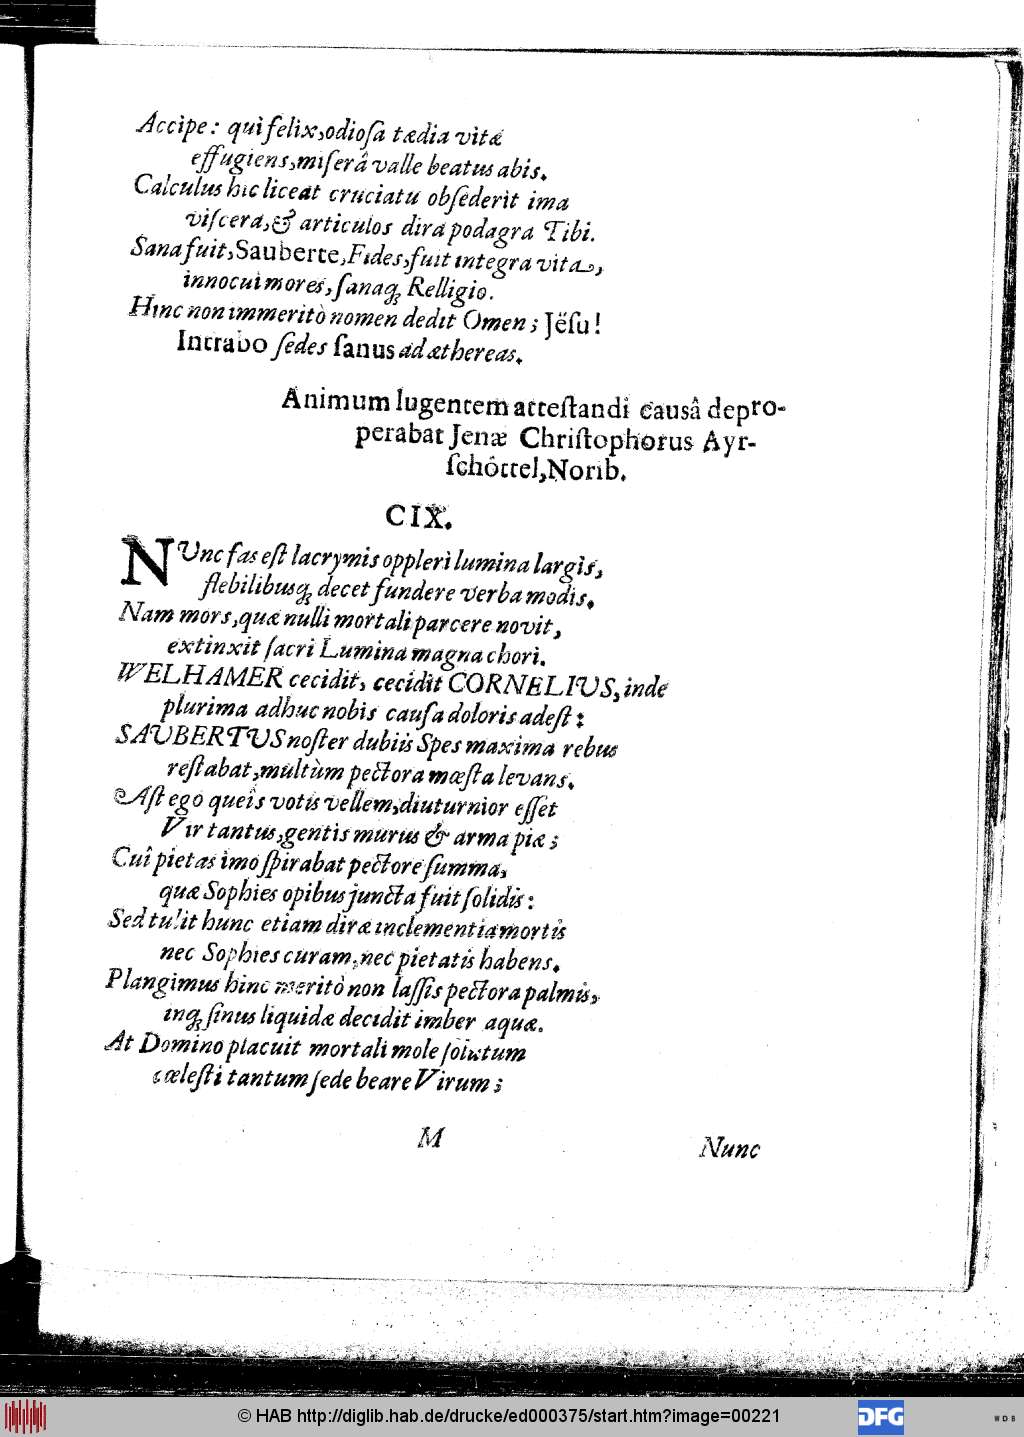 Accipe: qui felix, odiosa tædia vitæ
effugiens, miserâ valle beatus abis.
Calculus hic liceat cruciatu obsederit ima
viscera, & articulos dira podagra Tibi.
Sana fuit, Sauberte, Fides, fuit integra vita,
innocui mores, sanaq; Relligio.
Hinc non immeritò nomen dedit Omen; Jësu!
Intrabo sedes sanus ad æthereas.
Animum lugentem attestandi causâ depro-
perabat Jenæ Christophorus Ayr-
schôttel, Norib.
CIX.
NUnc fas est lacrymis oppleri lumina largis,
flebilibusq; decet fundere verba modis.
Nam mors, quæ nulli mortali parcere novit,
extinxit sacri Lumina magna chori.
WELHAMER cecidit, cecidit CORNELIUS, inde
plurima adhuc nobis causa doloris adest:
SAUBERTUS noster dubiis Spes maxima rebus
restabat, multùm pectora mœsta levans.
Ast ego queîs votis vellem, diuturnior esset
Vir tantus, gentis murus & arma piæ;
Cuî pietas imo spirabat pectore summa,
quæ Sophies opibus juncta fuit solidis:
Sed tulit hunc etiam diræ inclementia mortis
nec Sophies curam, nec pietatis habens.
Plangimus hinc meritò non lassis pectora palmis,
inq; sinus liquidæ decidit imber aquæ.
At Domino placuit mortali mole solutum
cœlesti tantum sede beare Virum;
M
Nunc
© HAB http://diglib.hab.de/drucke/ed000375/start.htm?image=00221
DFG
WDB